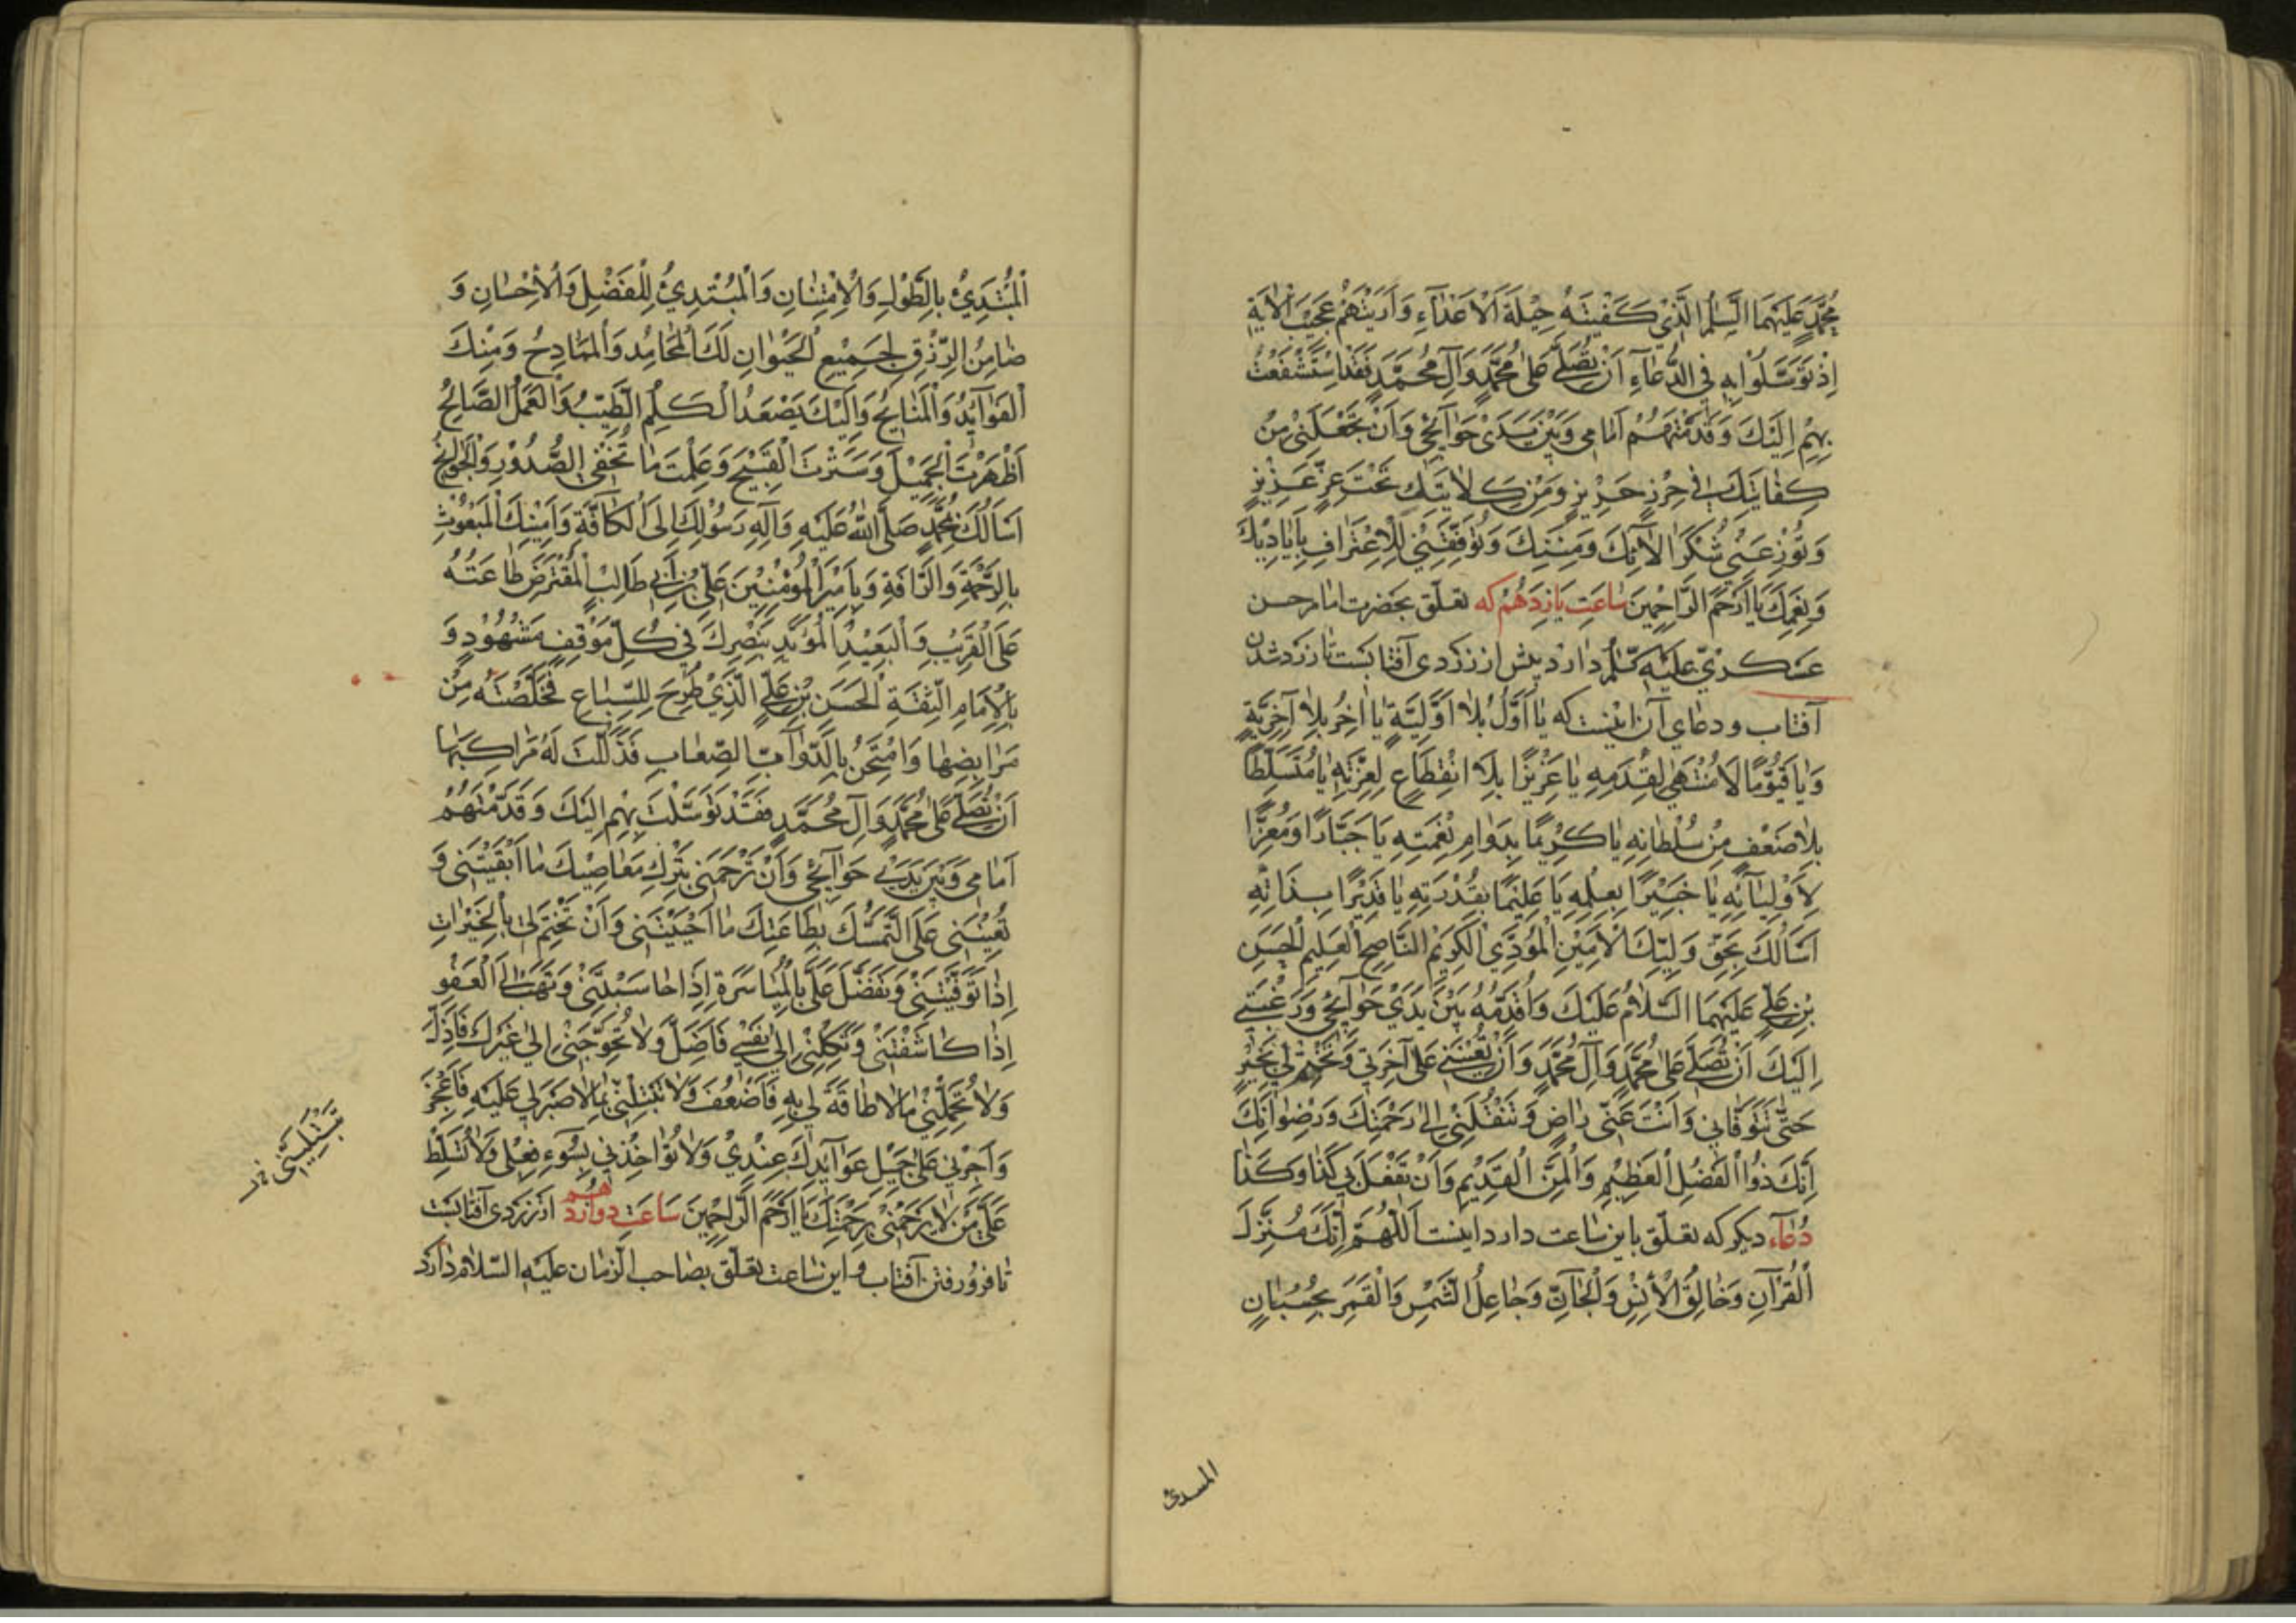 مُحَمَّدٍ عَلَيْهِمَا السَّلٰمُ الَّذِيْ كَفَيْتَهُ حِيْلَةَ الْاَعْدَآءِ وَاَرَيْتَهُمْ عَجِيْبَ الْاٰيَةِ
اِذْ تَوَسَّلُوْا بِهِ فِي الدُّعَآءِ اَنْ تُصَلِّيَ عَلٰى مُحَمَّدٍ وَآلِ مُحَمَّدٍ فَقَدِ اسْتَشْفَعْتُ
بِهِمْ اِلَيْكَ وَقَدَّمْتُهُمْ اَمَامِي وَبَيْنَ يَدَيْ حَوَآئِجِي وَاَنْ تَجْعَلَنِيْ مِنْ
كِفَايَتِكَ فِي حِرْزٍ حَرِيْزٍ وَمِنْ كَلَايَتِكَ تَحْتَ عِزٍّ عَزِيْزٍ
وَتُوْزِعَنِي شُكْرَ الْآئِكَ وَمِنَنِكَ وَتُوَفِّقَنِيْ لِلْاِعْتِرَافِ بِاَيَادِيْكَ
وَنِعَمِكَ يَا اَرْحَمَ الرَّاحِمِيْنَ سَاعَتِ يَازْدَهُمْ كه تعلّق بحضرت امام حسن
عَسْكَريّ عَلَيْهِ السَّلٰم دارد پيش از زردى آفتابست تا زرد شدن
آفتاب و دعاى آن اينست كه يَا اَوَّلُ بِلَا اَوَّلِيَّةٍ يَا اٰخِرُ بِلَا آخِرِيَّةٍ
وَيَا قَيُّوْمًا لَا مُنْتَهٰى لِقِدَمِهِ يَا عَزِيْزًا بِلَا انْقِطَاعٍ لِعِزَّتِهِ يَا مُتَسَلِّطًا
بِلَا ضَعْفٍ مِنْ سُلْطَانِهِ يَا كَرِيْمًا بِدَوَامِ نِعْمَتِهِ يَا جَبَّارًا وَمُعِزًّا
لِاَوْلِيَآئِهِ يَا خَبِيْرًا بِعِلْمِهِ يَا عَلِيْمًا بِقُدْرَتِهِ يَا قَدِيْرًا بِذَاتِهِ
اَسْاَلُكَ بِحَقِّ وَلِيِّكَ الْاَمِيْنِ الْمُؤَدِّي الْكَرِيْمِ النَّاصِحِ الْعَلِيْمِ الْحَسَنِ
بْنِ عَلِيٍّ عَلَيْهِمَا السَّلَامُ عَلَيْكَ وَاُقَدِّمُهُ بَيْنَ يَدَيْ حَوَآئِجِيْ وَرَغْبَتِي
اِلَيْكَ اَنْ تُصَلِّيَ عَلٰى مُحَمَّدٍ وَآلِ مُحَمَّدٍ وَاَنْ تُعِيْنَنِيْ عَلٰى آخِرَتِي وَتَخْتِمَ لِي بِخَيْرٍ
حَتّٰى تَتَوَفَّانِي وَاَنْتَ عَنِّي رَاضٍ وَتَنْقُلَنِيْ اِلٰى رَحْمَتِكَ وَرِضْوَانِكَ
اِنَّكَ ذُوا الْفَضْلِ الْعَظِيْمِ وَالْمَنِّ الْقَدِيْمِ وَاَنْ تَفْعَلَ بِي كَذَا وَكَذَا
دُعَآء ديكر كه تعلّق باين ساعت دارد اينست اَللّٰهُمَّ اِنَّكَ مُنَزِّلُ
الْقُرْآنِ وَخَالِقُ الْاِنْسِ وَالْجَآنِّ وَجَاعِلُ الشَّمْسِ وَالْقَمَرِ بِحُسْبَانٍ
المبتدئ
اَلْمُبْتَدِئُ بِالطَّوْلِ وَالْاِمْتِنَانِ وَالْمُبْتَدِئُ لِلْفَضْلِ وَالْاِحْسَانِ وَ
ضَامِنُ الرِّزْقِ لِجَمِيْعِ الْحَيْوَانِ لَكَ الْمَحَامِدُ وَالْمَمَادِحُ وَمِنْكَ
الْفَوَآئِدُ وَالْمَنَايِحُ وَاِلَيْكَ يَصْعَدُ الْكَلِمُ الطَّيِّبُ وَالْعَمَلُ الصَّالِحُ
اَظْهَرْتَ الْجَمِيْلَ وَسَتَرْتَ الْقَبِيْحَ وَعَلِمْتَ مَا تُخْفِي الصُّدُوْرُ وَالْجَوَانِحُ
اَسْاَلُكَ بِمُحَمَّدٍ صَلَّى اللّٰهُ عَلَيْهِ وَآلِهِ رَسُوْلِكَ اِلَى الْكَافَّةِ وَاَمِيْنِكَ الْمَبْعُوْثِ
بِالرَّحْمَةِ وَالرَّافَةِ وَبِاَمِيْرِ الْمُؤْمِنِيْنَ عَلِيِّ بْنِ اَبِي طَالِبٍ الْمُفْتَرَضِ طَاعَتُهُ
عَلَى الْقَرِيْبِ وَالْبَعِيْدِ الْمُؤَيَّدِ بِنَصْرِكَ فِي كُلِّ مَوْقِفٍ مَشْهُوْدٍ وَ
بِالْاِمَامِ الثِّقَةِ الْحَسَنِ بْنِ عَلِيٍّ الَّذِيْ طُرِحَ لِلسِّبَاعِ فَخَلَّصْتَهُ مِنْ
مَرَابِضِهَا وَامْتُحِنَ بِالدَّوَآبِّ الصِّعَابِ فَذَلَّلْتَ لَهُ مَرَاكِبَهَا
اَنْ تُصَلِّيَ عَلٰى مُحَمَّدٍ وَآلِ مُحَمَّدٍ فَقَدْ تَوَسَّلْتُ بِهِمْ اِلَيْكَ وَقَدَّمْتُهُمْ
اَمَامِي وَبَيْنَ يَدَيْ حَوَآئِجِي وَاَنْ تَرْحَمَنِي بِتَرْكِ مَعَاصِيْكَ مَا اَبْقَيْتَنِي وَ
تُعِيْنَنِي عَلَى التَّمَسُّكِ بِطَاعَتِكَ مَا اَحْيَيْتَنِي وَاَنْ تَخْتِمَ لِي بِالْخَيْرَاتِ
اِذَا تَوَفَّيْتَنِيْ وَتَفَضَّلَ عَلَيَّ بِالْمُيَاسَرَةِ اِذَا حَاسَبْتَنِيْ وَتَهَبَ لِيَ الْعَفْوَ
اِذَا كَاشَفْتَنِيْ وَتَكِلْنِيْ اِلٰى نَفْسِي فَاَضِلَّ وَلَا تُحَوِّجْنِيْ اِلٰى غَيْرِكَ فَاَذِلَّ
وَلَا تُحَمِّلْنِيْ مَا لَا طَاقَةَ لِي بِهِ فَاَضْعُفَ وَلَا تَبْتَلِنِيْ بِمَا لَا صَبْرَ لِي عَلَيْهِ فَاَعْجِزَ
وَاَجْرِنِي عَلٰى جَمِيْلِ عَوَآئِدِكَ عِنْدِيْ وَلَا تُؤَاخِذْنِي بِسُوْءِ فِعْلِي وَلَا تُسَلِّطْ
عَلَيَّ مَنْ لَا يَرْحَمُنِيْ بِرَحْمَتِكَ يَا اَرْحَمَ الرَّاحِمِيْنَ سَاعَتِ دوازدهم از زردى آفتابست
تا فرو رفتن آفتاب و اين ساعت تعلّق بصاحب الزمان عليه السلام دارد